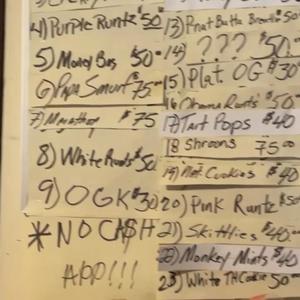 4) Purple Runtz $50
5) Money Bag $50
6) Papa Smurf $75
7) Marathon $75
8) White Runts $50
9) OGK $30
*NO CA$H
APP!!!
13) Pnut Butta Breath $50
14) ??? $50
15) Plat. OG $30
16 Obama Runts $50
17) Tart Pops $40
18 Shrooms 75
19) Cookies $40
20) Pink Runtz $50
21) Skittles $40
22) Monkey Mints $40
23) White THCookie 50